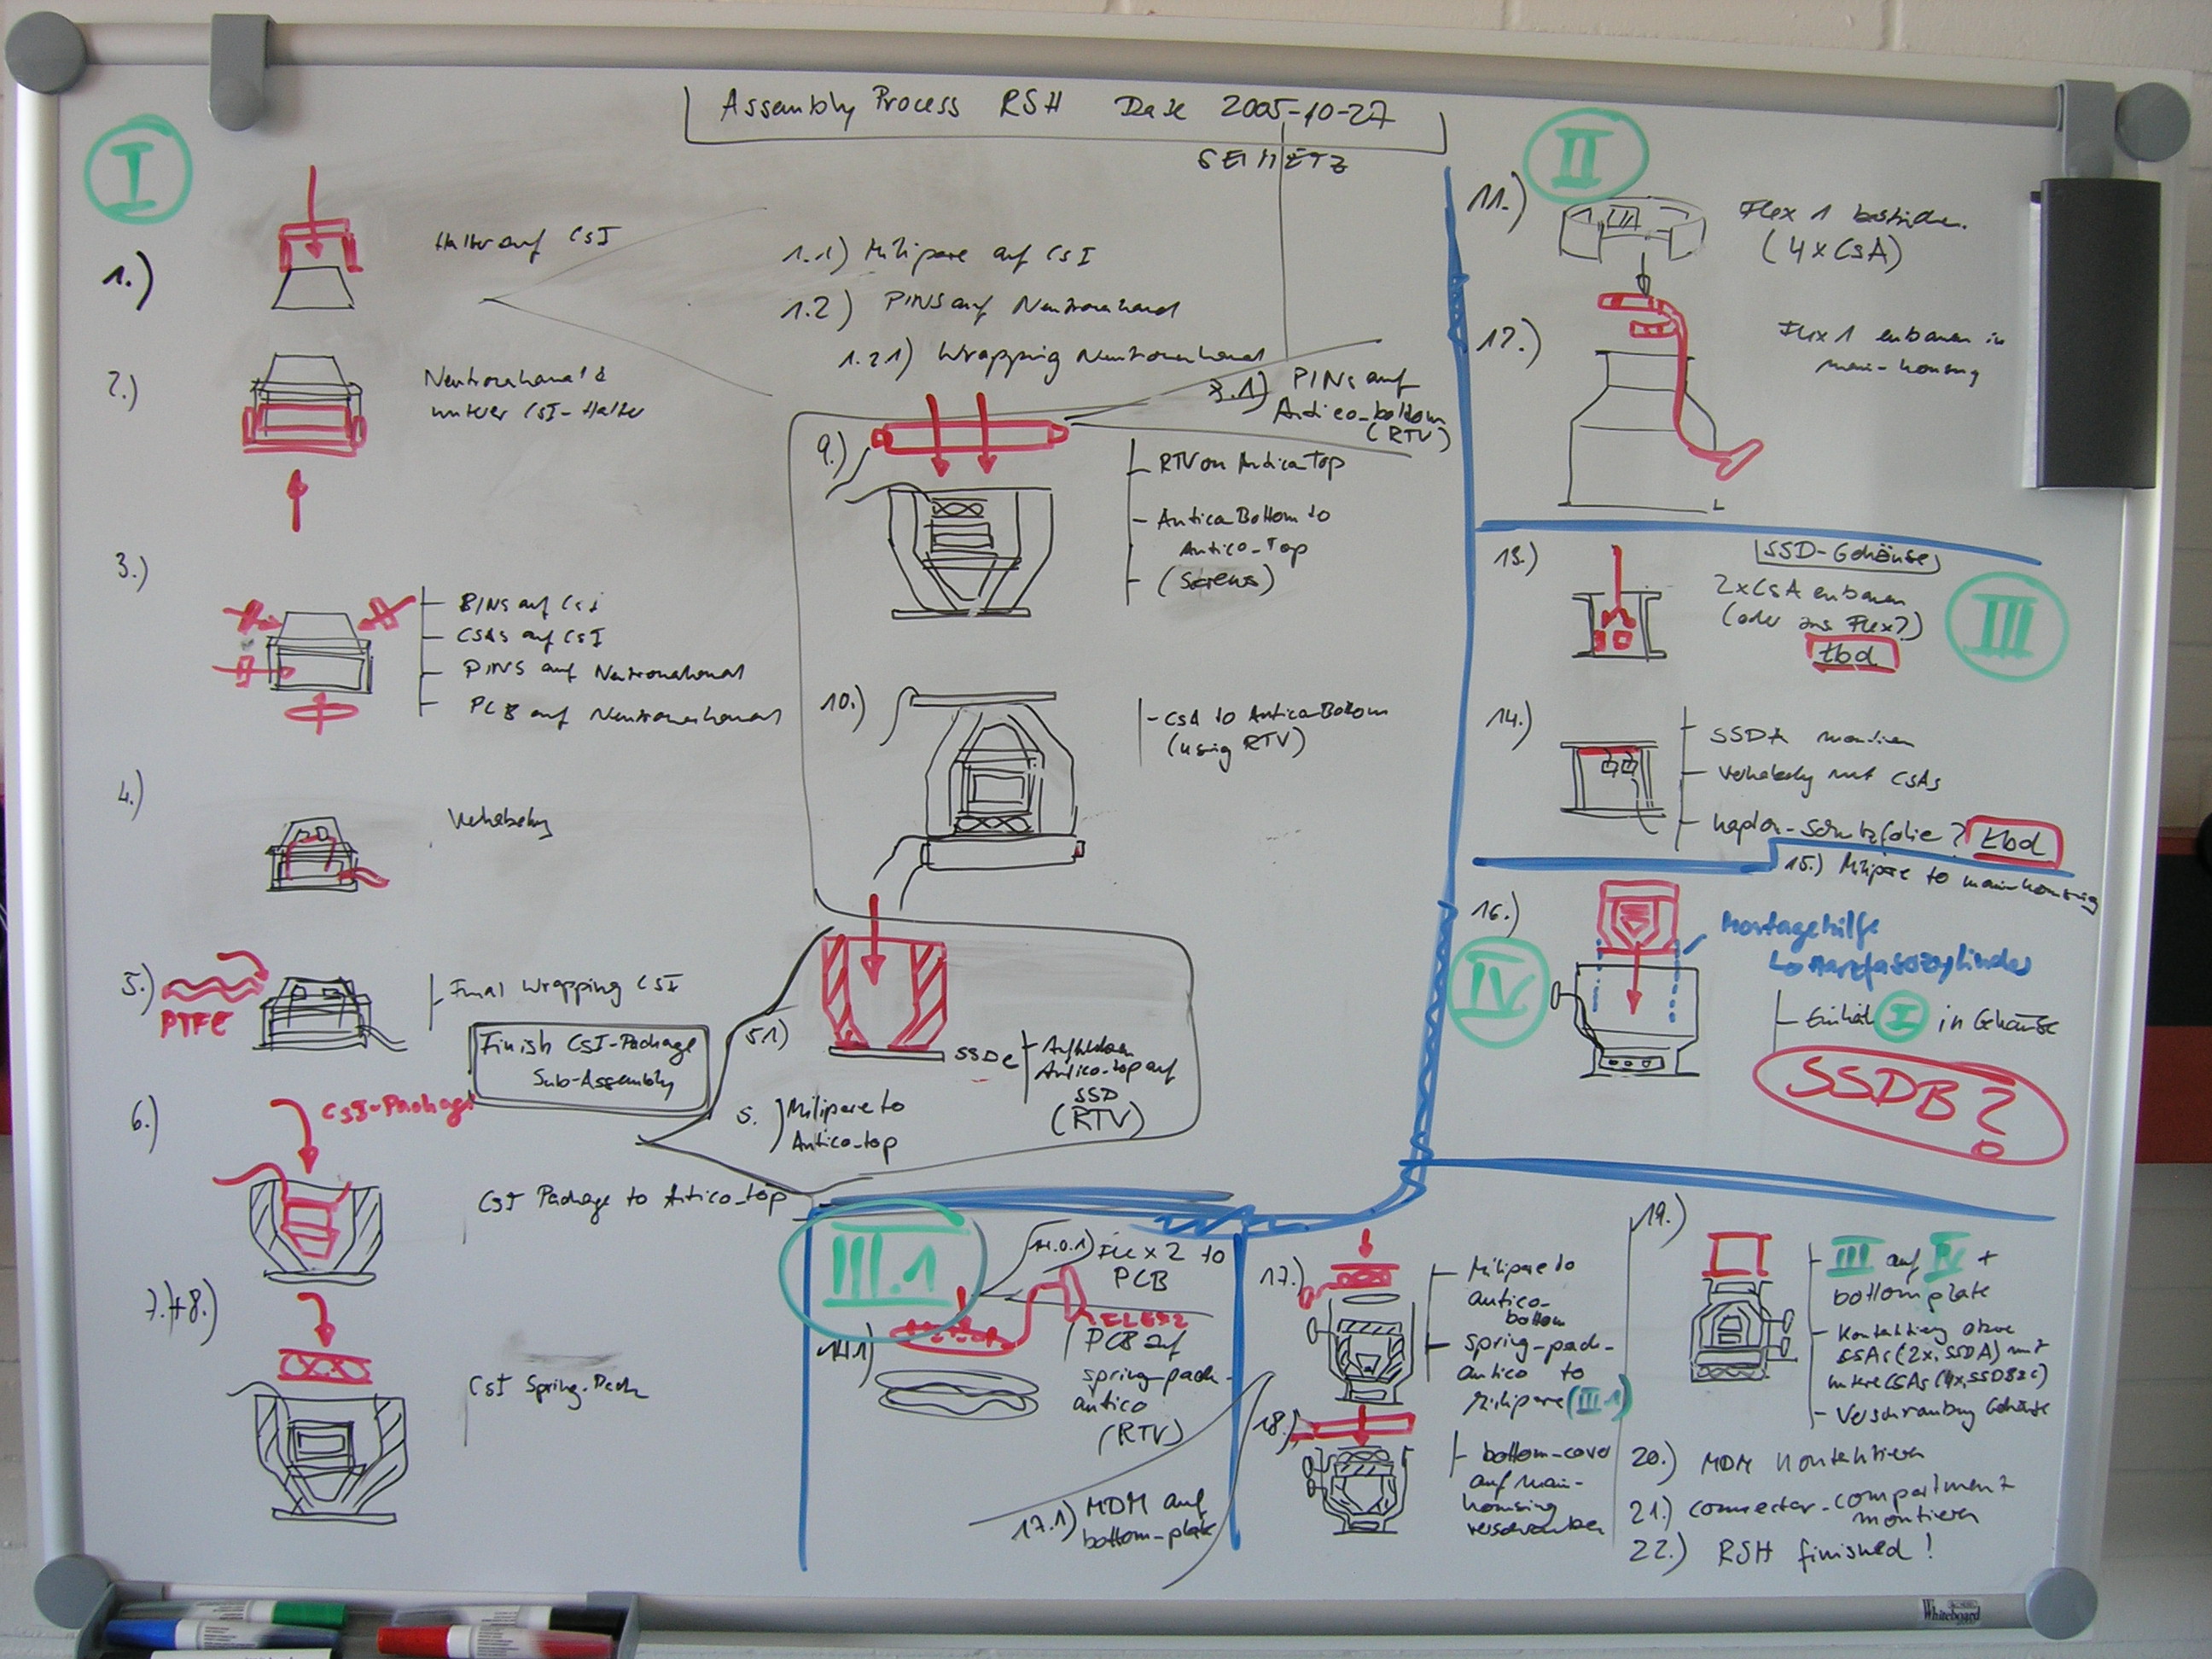 Assembly Process RSH Date 2005-10-27
SEIMETZ
I
1.)
Halter auf CsI
1.1) Milipore auf CsI
1.2) PINS auf Neutronenkanal
1.21) Wrapping Neutronenkanal
2.)
Neutronenkanal &
unterer CsI-Halter
3.)
PINS auf CsI
CSAs auf CsI
PINS auf Neutronenkanal
PCB auf Neutronenkanal
4.)
Verkabelung
5.)
PTFE
Final Wrapping CsI
Finish CsI-Package
Sub-Assembly
5.1)
SSDC
Aufkleben
Antico-top auf
SSD
(RTV)
5. ) Milipore to
Antico-top
6.)
CsI-Package
CsI Package to Antico-top
7.)+8.)
CsI Spring-Pack
9.)
PINs auf
Antico-bottom
(RTV)
RTV on Antico Top
- Antico Bottom to
Antico-Top
- (Screws)
10.)
- CSA to Antico Bottom
(using RTV)
II
11.)
Flex 1 bestücken
(4 x CSA)
12.)
Flex 1 einbauen in
main-housing
III
13.)
SSD-Gehäuse
2xCSA einbauen
(oder ins Flex?)
tbd
14.)
SSDA montieren
- Verkabelung mit CSAs
- Kapton-Schutzfolie? tbd
15.) Milipore to main housing
IV
16.)
Montagehilfe
- Einheit I in Gehäuse
SSDB?
III.1
14.0.1) Flex 2 to
PCB
FLEX2
14.1)
PCB auf
spring-pack-
antico
(RTV)
17.1) MDM auf
bottom-plate
17.)
Milipore to
antico-
bottom
spring-pack-
antico to
Milipore (III.1)
18.)
bottom-cover
auf main-
housing
verschrauben
19.)
III auf IV +
bottom plate
- Kontaktierung obere
CSAs (2x, SSDA) mit
untere CSAs (4x, SSDB&C)
- Verschraubung Gehäuse
20.) MDM kontaktieren
21.) connector-compartment
montieren
22.) RSH finished!
Whiteboard